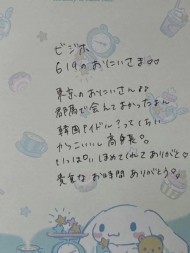 ビジホ
619のおにいさま♡♡
東京のおにいさん
群馬で会えてよかったよん
韓国アイドル?ってくらい
かっこいいし 高身長
いっぱいほめてくれてありがとう
貴重なお時間ありがとう